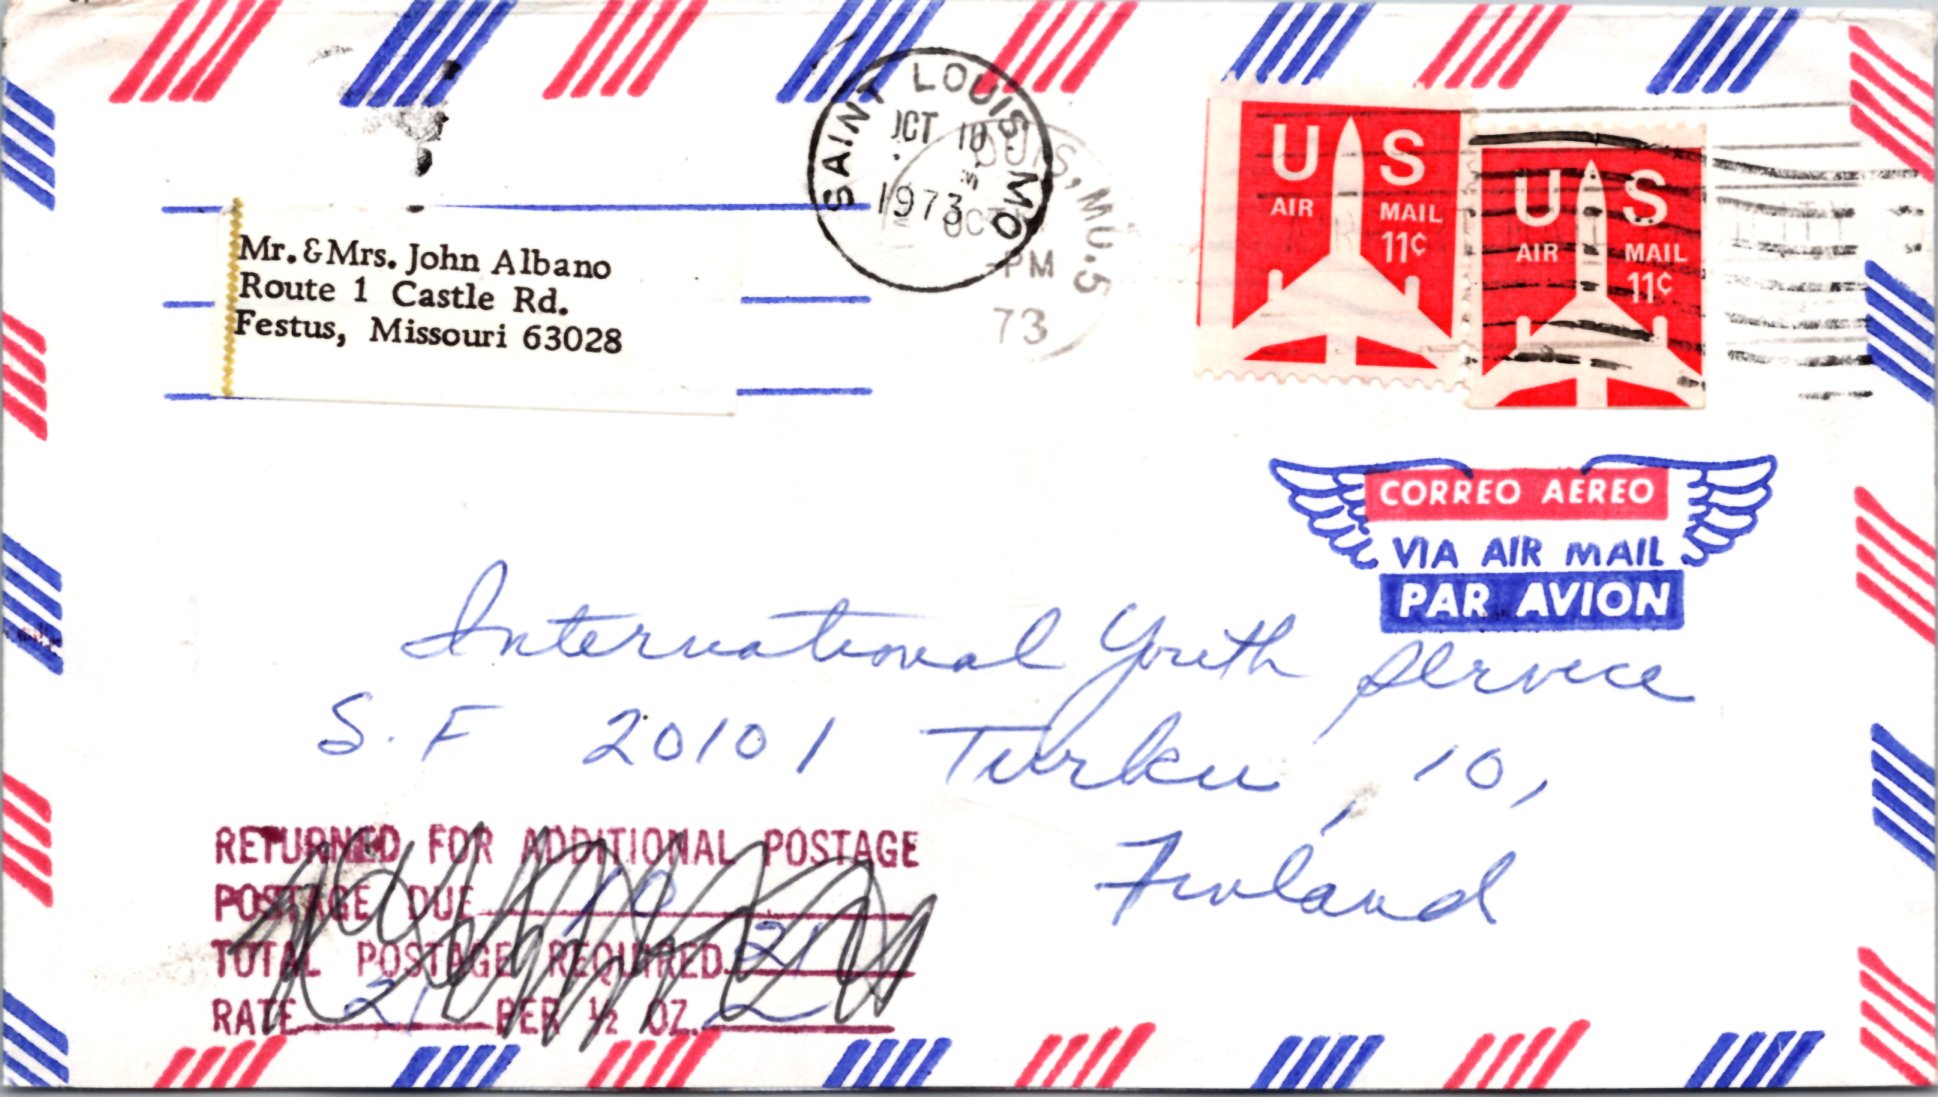 SAINT LOUIS MO
OCT 10
1973
OUIS, MO. 5
OCT
PM
73
U S
AIR MAIL
11¢
U S
AIR MAIL
11¢
Mr. & Mrs. John Albano
Route 1 Castle Rd.
Festus, Missouri 63028
CORREO AEREO
VIA AIR MAIL
PAR AVION
International Youth Service
S.F 20101 Turku, 10,
Finland
RETURNED FOR ADDITIONAL POSTAGE
POSTAGE DUE 10
TOTAL POSTAGE REQUIRED 21
RATE 21 PER ½ OZ.